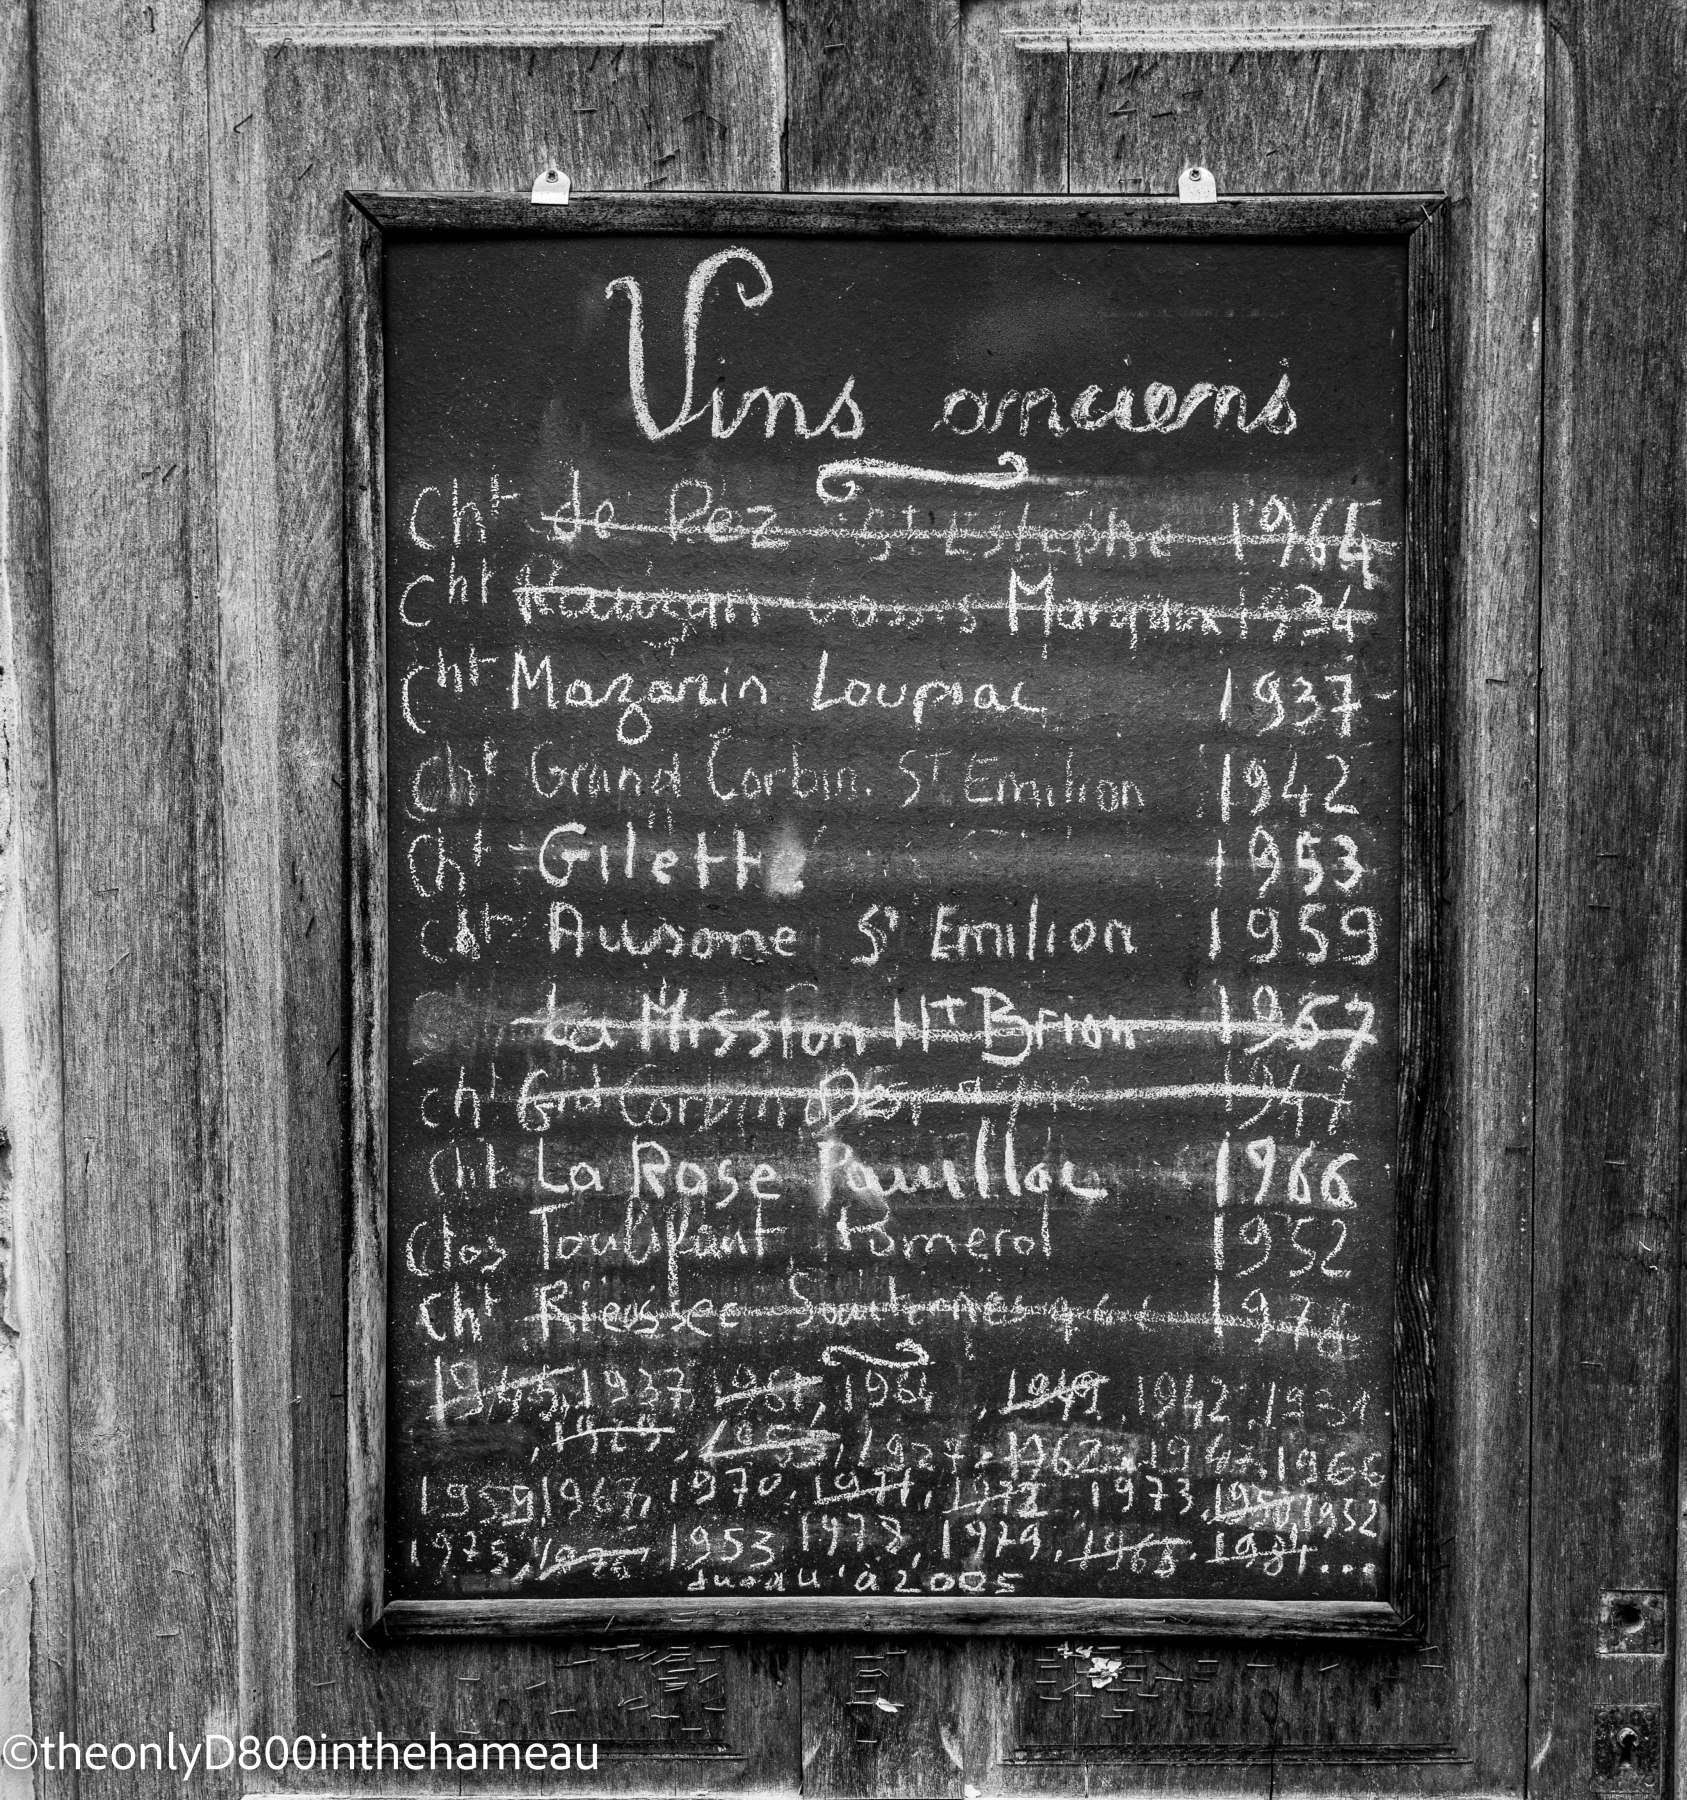 Vins anciens
Cht de Pez St Estèphe 1964
Cht Margaux 1934
Cht Mazarin Loupiac 1937
Cht Grand Corbin. ST Emilion 1942
Cht Gilette 1953
Cht Ausone St Emilion 1959
La Mission HT Brion 1967
cht Gd Corbin 1947
Cht La Rose Pauillac 1966
Clos Toulifaut Pomerol 1952
Cht Rieussec Sauternes 1978
1945, 1937, 1961, 1964, 1949, 1942, 1931
, , 1955, 1927, 1962, 1947, 1966
1959, 1967, 1970, 1971, 1972, 1973, 1950, 1952
1975, 1976, 1953 1978, 1979, 1968, 1981, ...
jusqu'à 2005
©theonlyD800inthehameau